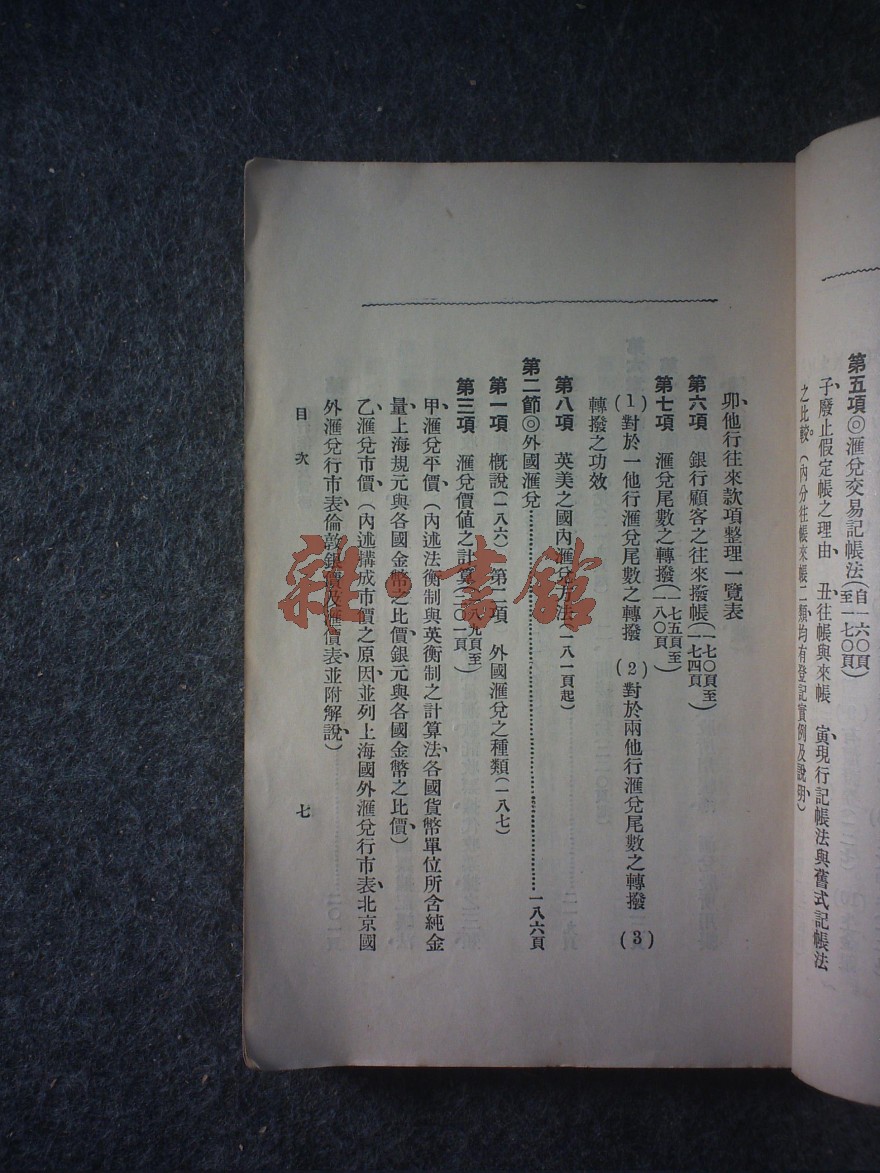 第五項◎滙兌交易記帳法(自一六〇頁至一七〇頁)
子、廢止假定帳之理由、丑、往帳與來帳 寅、現行記帳法與舊式記帳法
之比較。(內分往帳來帳二類均有登記實例及說明)
卯、他行往來款項整理一覽表
第六項 銀行顧客之往來撥帳(一七〇頁至一七四頁)
第七項 滙兌尾數之轉撥(一七五頁至一八〇頁)
(1)對於一他行滙兌尾數之轉撥 (2)對於兩他行滙兌尾數之轉撥 (3)
轉撥之功效
第八項 英美之國內滙兌方法(一八一頁起)
第二節◎外國滙兌……一八六頁
第一項 概說(一八六) 第二項 外國滙兌之種類(一八七)
第三項 滙兌價值之計算(一八九頁至二〇一頁)
甲、滙兌平價、(內述法衡制與英衡制之計算法、各國貨幣單位所含純金
量、上海規元與各國金幣之比價、銀元與各國金幣之比價、)
乙、滙兌市價、(內述構成市價之原因、並列上海國外滙兌行市表、北京國
外滙兌行市表、倫敦銀價及滙價表、並附解說、)
目次
七
雜·書館